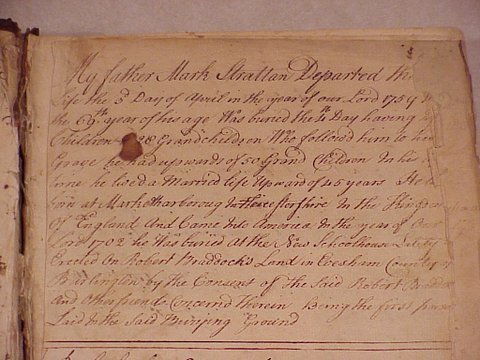 My father Mark Strattan Departed this
life the 3d Day of April in the year of our Lord 1759
the 69th year of his age Was buried the 4 Day having
Children & 28 Grandchildren Who followed him to his
Grave he had upwards of 50 Grand Children In his
he lived a Married life Upward of 45 years He
born at Market harboroug In Licestorshire In the Kingdom
of England And Came Into America In the year of Our
Lord 1702 he Was Buried at the New Schoolhouse Lately
Erected On Robert Braddock's Land in Evesham County of
Burlington by the Consent of the Said Robert Braddock
And Other friends Concernd therein Being the first person
Laid In the Said Burying Ground